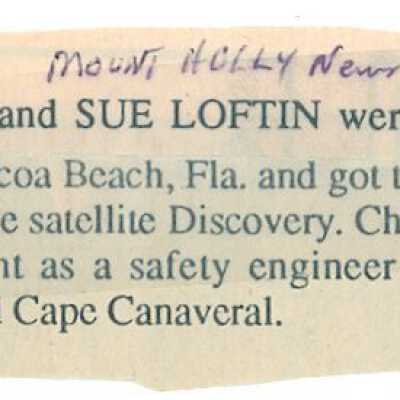 MOUNT HOLLY News
and SUE LOFTIN wer
coa Beach, Fla. and got t
e satellite Discovery. Ch
nt as a safety engineer
Cape Canaveral.